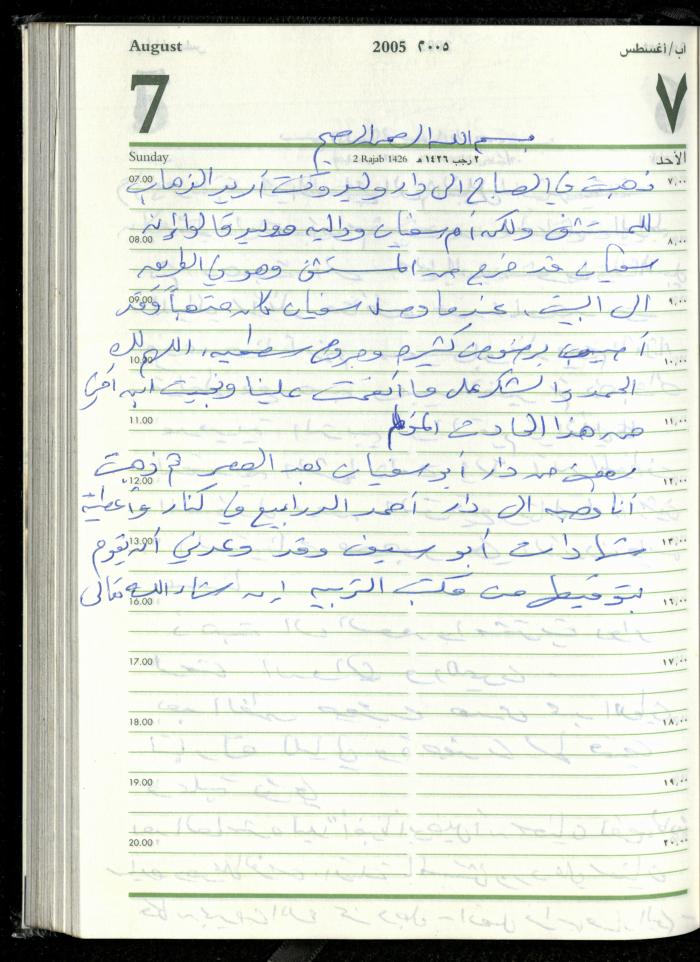 August 2005 ٢٠٠٥ آب/أغسطس
7 ٧
بسم الله الرحمن الرحيم
Sunday 2 Rajab 1426 ٢ رجب ١٤٢٦ هـ الأحد
07.00 ذهبت في الصباح الى دار وليد وكنت أريد الذهاب ٧,٠٠
للمستشفى ولكن أم سفيان و وليد قالوا إن
08.00 ٨,٠٠
سفيان قد خرج من المستشفى وهو في الطريق
09.00 الى البيت. عندما وصل سفيان كان متعباً فقد ٩,٠٠
أصيب برضوض كثيرة وجروح سطحية، اللهم لك
10.00 ١٠,٠٠
الحمد والشكر على ما أنعمت علينا ونجيت ابن
11.00 من هذا الحادث المؤلم ١١,٠٠
من دار أبو سفيان بعد العصر ثم ذهبت
12.00 ١٢,٠٠
أنا الى دار أحمد الدرابيع في كنار وأعطيته
13.00 شهادات أبو سيف وقد وعدني أن يقوم ١٣,٠٠
من مكتب التربيه إن شاء الله تعالى
16.00 ١٦,٠٠
17.00 ١٧,٠٠
18.00 ١٨,٠٠
19.00 ١٩,٠٠
20.00 ٢٠,٠٠